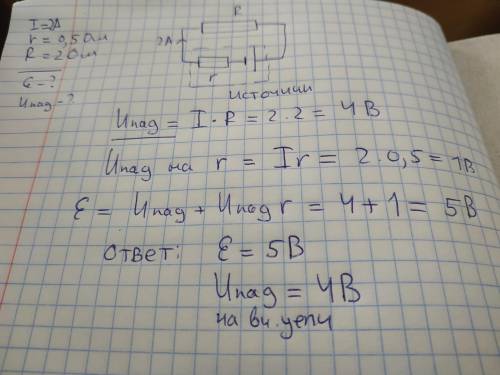 I=2A
r = 0,5 Ом
R = 2 Ом
ε - ?
Uпад - ?
R
2A
r
источник
Uпад = I · R = 2 · 2 = 4 В
Uпад на r = Ir = 2 · 0,5 = 1В
ε = Uпад + Uпад r = 4 + 1 = 5В
Ответ: ε = 5В
Uпад = 4В
на вн. цепи